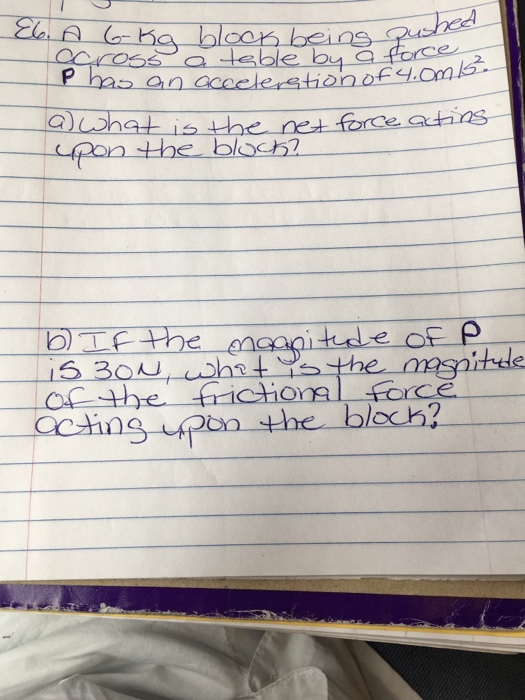 E6. A 6-kg block being pushed
across a table by a force
P has an acceleration of 4.0m/s².
a) What is the net force acting
upon the block?
b) If the magnitude of P
is 30N, what is the magnitude
of the frictional force
acting upon the block?